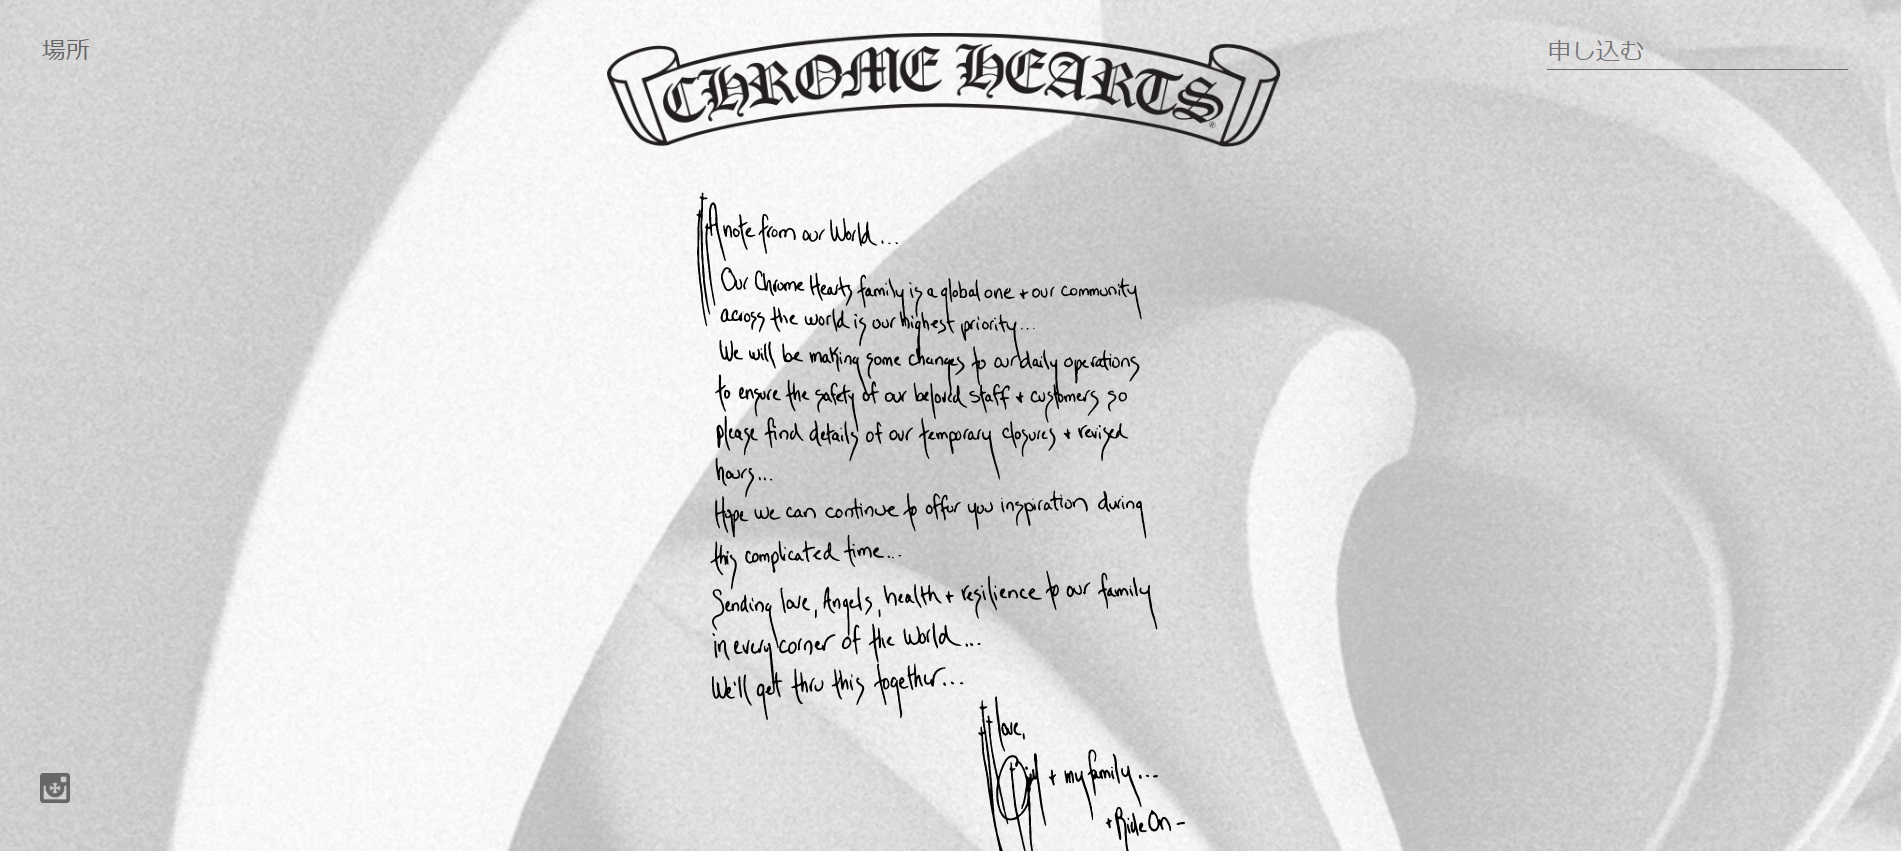 場所
CHROME HEARTS
®
申し込む
A note from our World...
Our Chrome Hearts family is a global one + our community
across the world is our highest priority...
We will be making some changes to our daily operations
to ensure the safety of our beloved staff + customers so
please find details of our temporary closures + revised
hours...
Hope we can continue to offer you inspiration during
this complicated time...
Sending love, Angels, health + resilience to our family
in every corner of the World...
We'll get thru this together...
love,
+ my family...
+ Ride On -